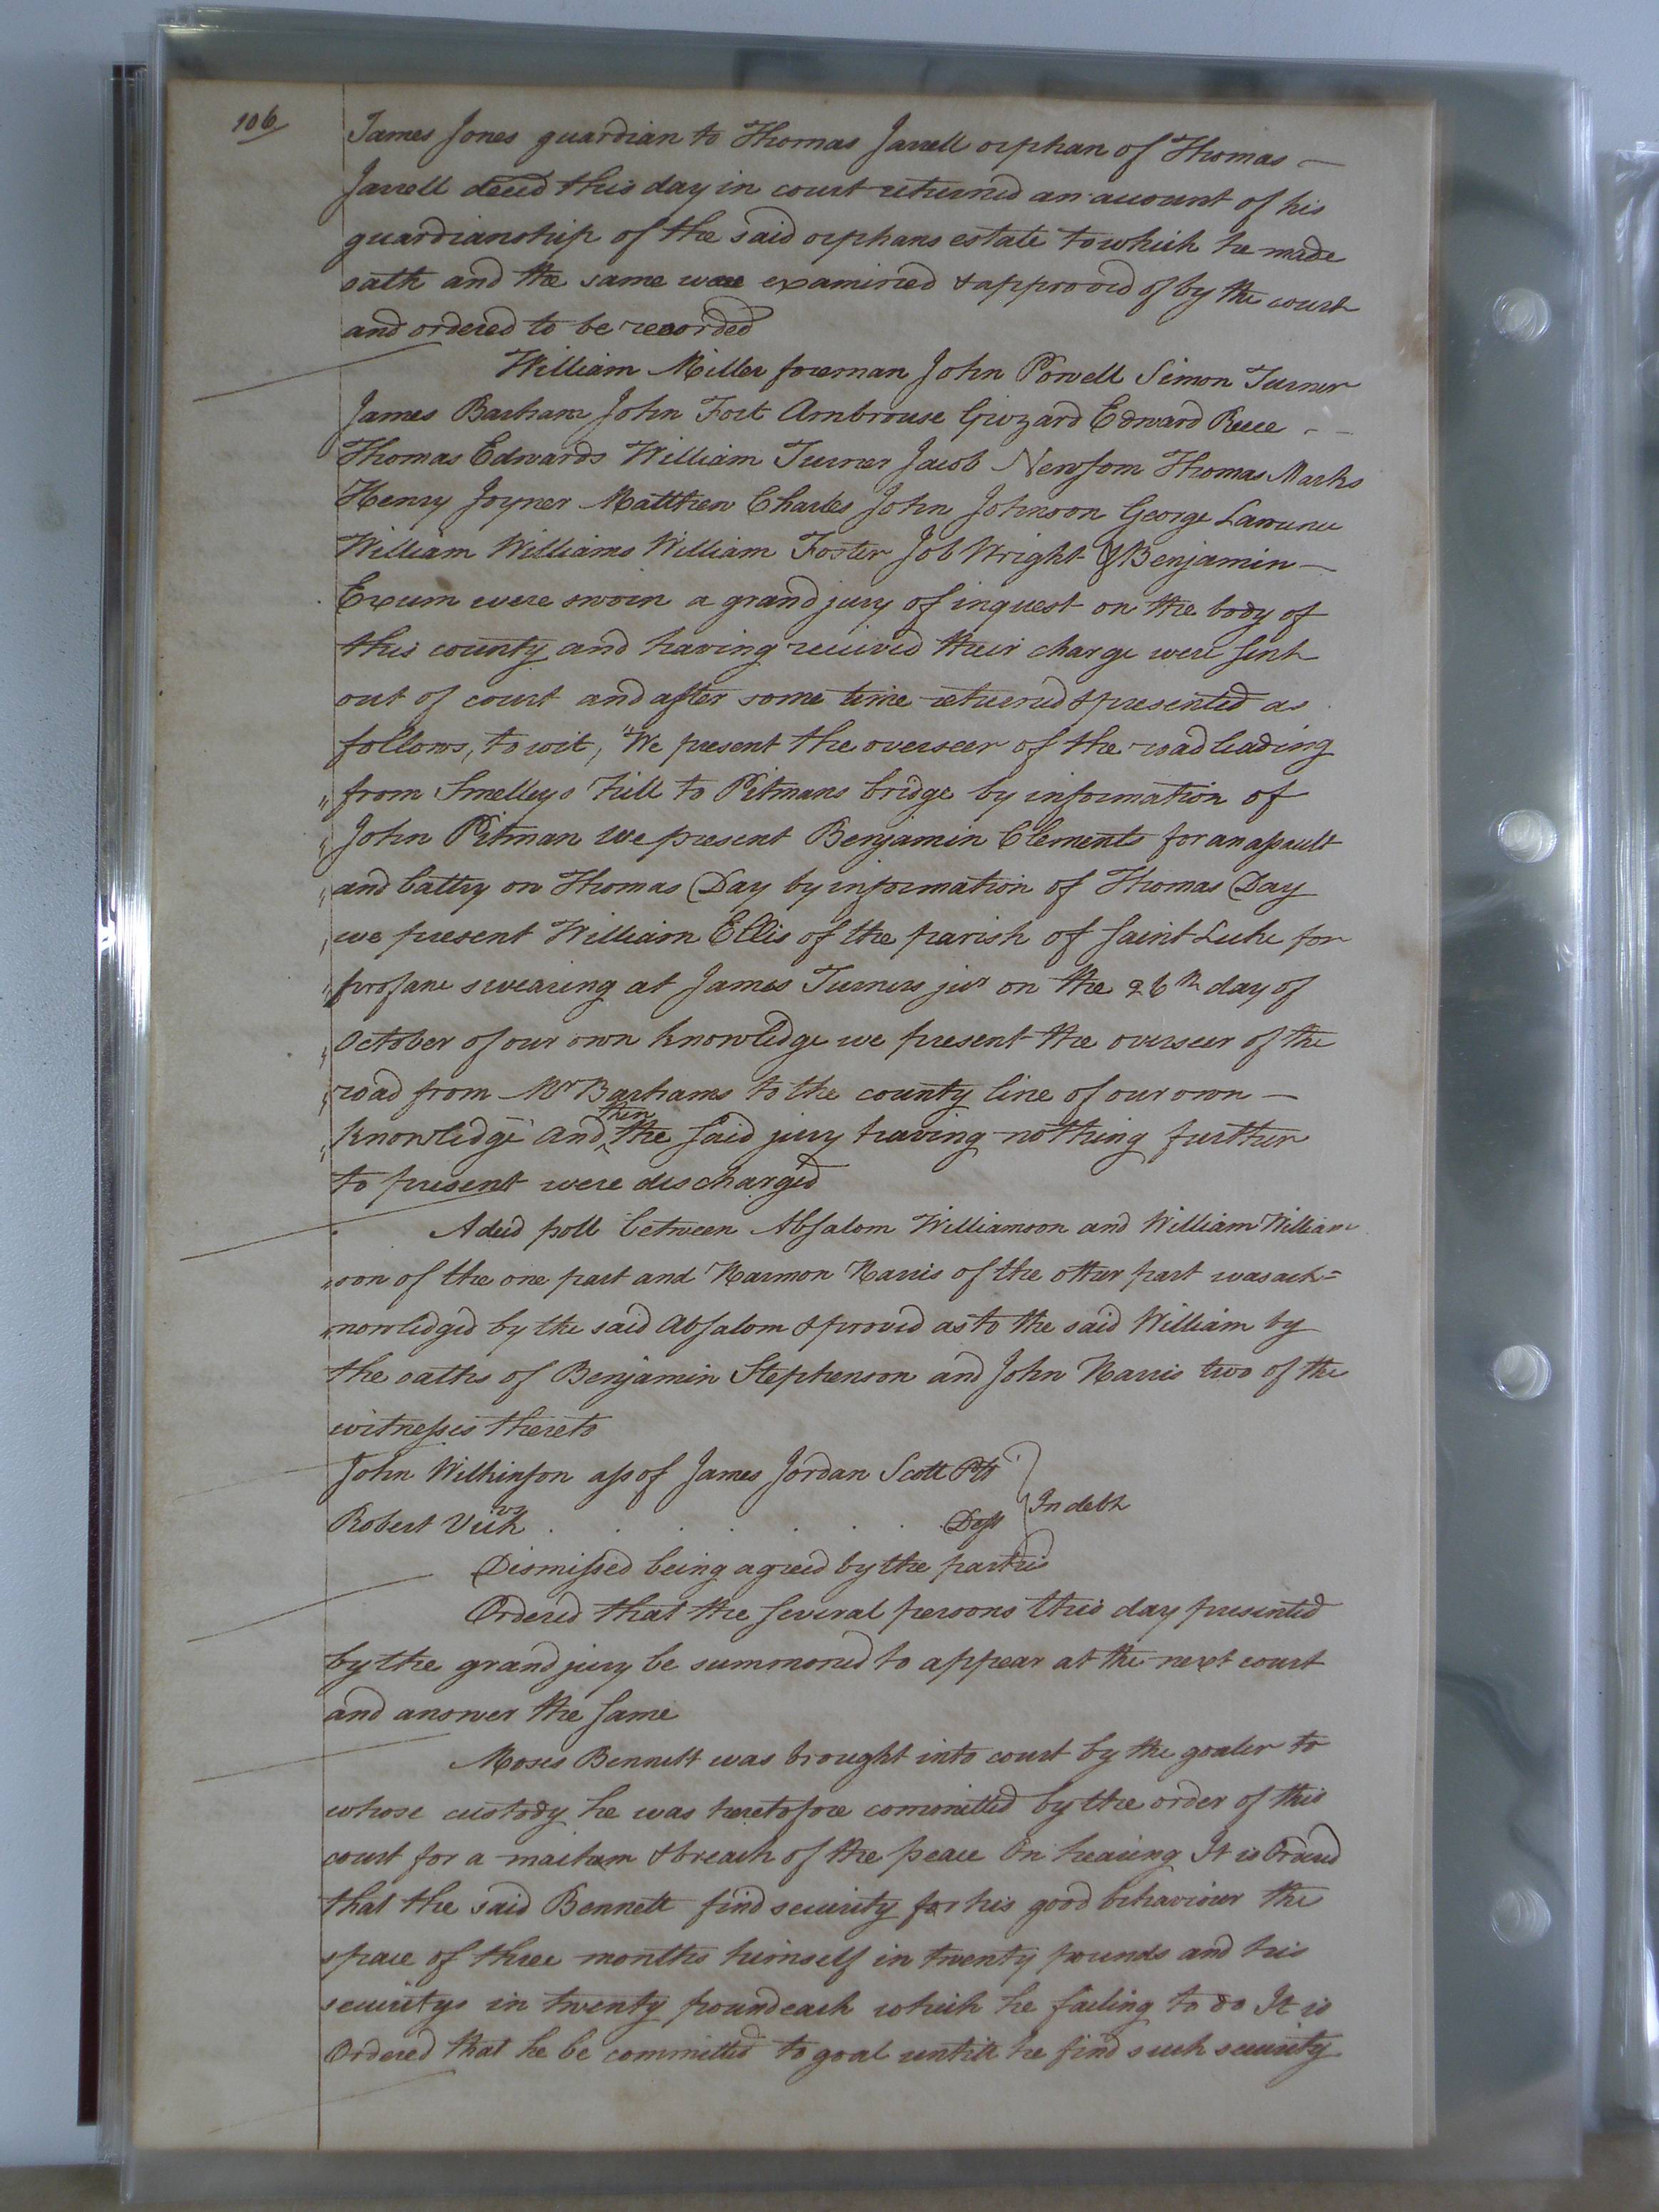 106
James Jones guardian to Thomas Jarrell orphan of Thomas —
Jarrell decd this day in court returned an account of his
guardianship of the said orphans estate to which he made
oath and the same were examined & approved of by the court
and ordered to be recorded
William Miller foreman John Powell Simon Turner
James Barham John Fort Ambrouse Grizard Edward Reece - -
Thomas Edwards William Turner Jacob Newsom Thomas Marks
Henry Joyner Matthew Charles John Johnson George Lawrence
William Williams William Foster Job Wright & Benjamin —
Exum were sworn a grand jury of inquest on the body of
this county and having received their charge were sent
out of court and after some time returned & presented as
follows, to wit, "We present the overseer of the road leading
" from Smelleys hill to Pitmans bridge by information of
" John Pitman we present Benjamin Clements for an assault
" and battry on Thomas Day by information of Thomas Day
" we present William Ellis of the parish of Saint Luke for
" profane swearing at James Turners junr on the 26th day of
" October of our own knowledge we present the overseer of the
" road from Mr Barhams to the county line of our own —
" knowledge" and then the said jury having nothing further
to present were discharged
A deed poll between Absalom Williamson and William William
son of the one part and Harmon Harris of the other part was ack=
nowledged by the said Absalom & proved as to the said William by
the oaths of Benjamin Stephenson and John Harris two of the
witnesses thereto
John Wilkinson ass of James Jordan Scott Plt
In debt
Robert Vick . . . . . . . Deft
Dismissed being agreed by the parties
Ordered that the several persons this day presented
by the grand jury be summoned to appear at the next court
and answer the same
Moses Bennett was brought into court by the goaler to
whose custody he was heretofore committed by the order of this
court for a maihem & breach of the peace On hearing It is Ordered
that the said Bennett find security for his good behaviour the
space of three months himself in twenty pounds and his
securitys in twenty pound each which he failing to do It is
Ordered that he be committed to goal untill he find such security